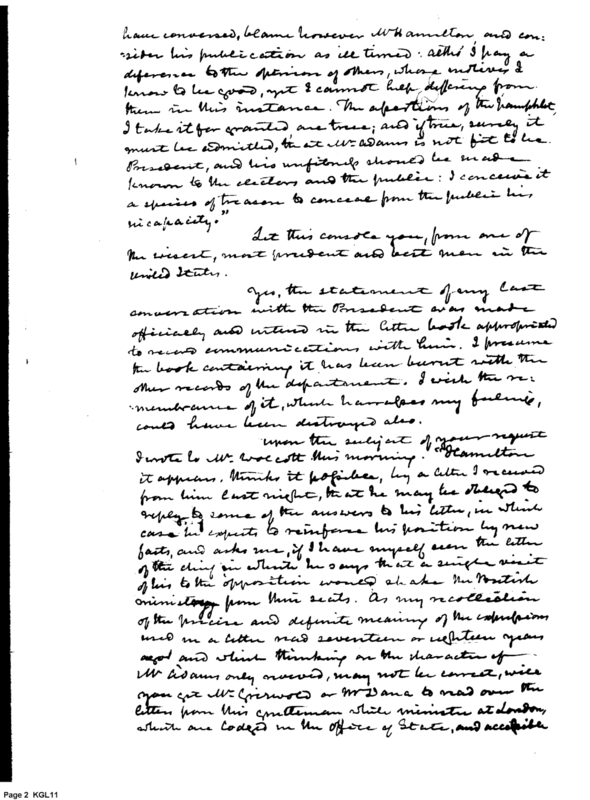 have conversed, blame however Mr Hamilton, and con:
:sider his publication as ill timed. altho' I pay a
deference to the opinion of others, whose motives I
know to be good, yet I cannot help differing from
them in this instance. The assertions of the Pamphlet,
I take it for granted are true; and if true, surely it
must be admitted, that Mr. Adams is not fit to be
President, and his unfitness should be made
known to the electors and the public: I conceive it
a species of treason to conceal from the public his
incapacity."
Let this console you, from one of
the wisest, most prudent and best men in the
United States.
Yes, the statement of my last
conversation with the President was made
officially and entered in the letter book appropriated
to record communications with him. I presume
the book containing it has been burnt with the
other records of the department. I wish the re:
:membrance of it, which harrasses my feelings,
could have been destroyed also.
Upon the subject of your request
I wrote to Mr. Wolcott this morning. Hamilton
it appears, thinks it possible, by a letter I received
from him last night, that he may be obliged to
reply to some of the answers to his letter, in which
case he expects to reinforse his position by new
facts, and asks me, if I have myself seen the letter
of the in which he says that a single visit
of his to the opposition would shake the British
ministry from their seats. As my recollection
of the precise and definite meaning of the expressions
used in a letter read seventeen or eighteen years
ago and which thinking on the character of
Mr Adams only revived, may not be correct, will
you get Mr. Griswold or Mr Dana to read over the
letters from this gentleman while minister at London,
which are lodged in the office of State, and accessible
Page 2 KGL11